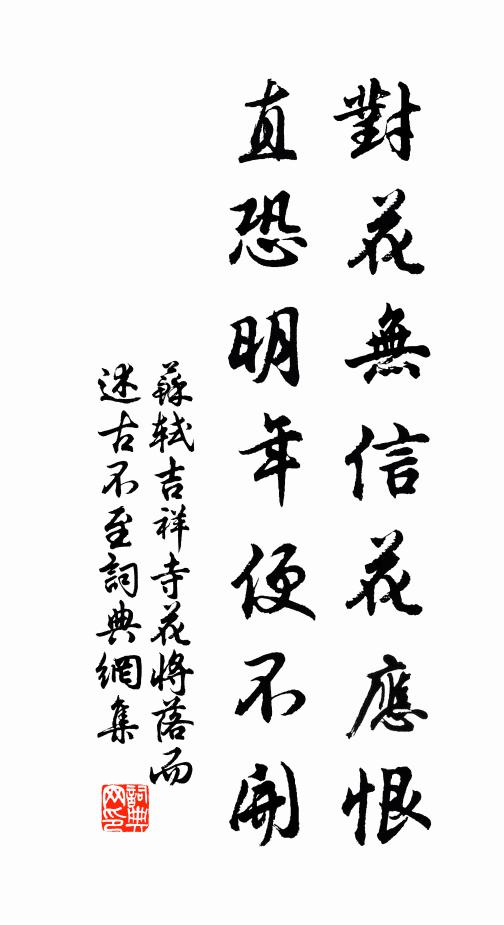 對花無信花應恨
直恐明年便不開
蘇軾吉祥寺花將落而
述古不至詞典網集
詞典
网印